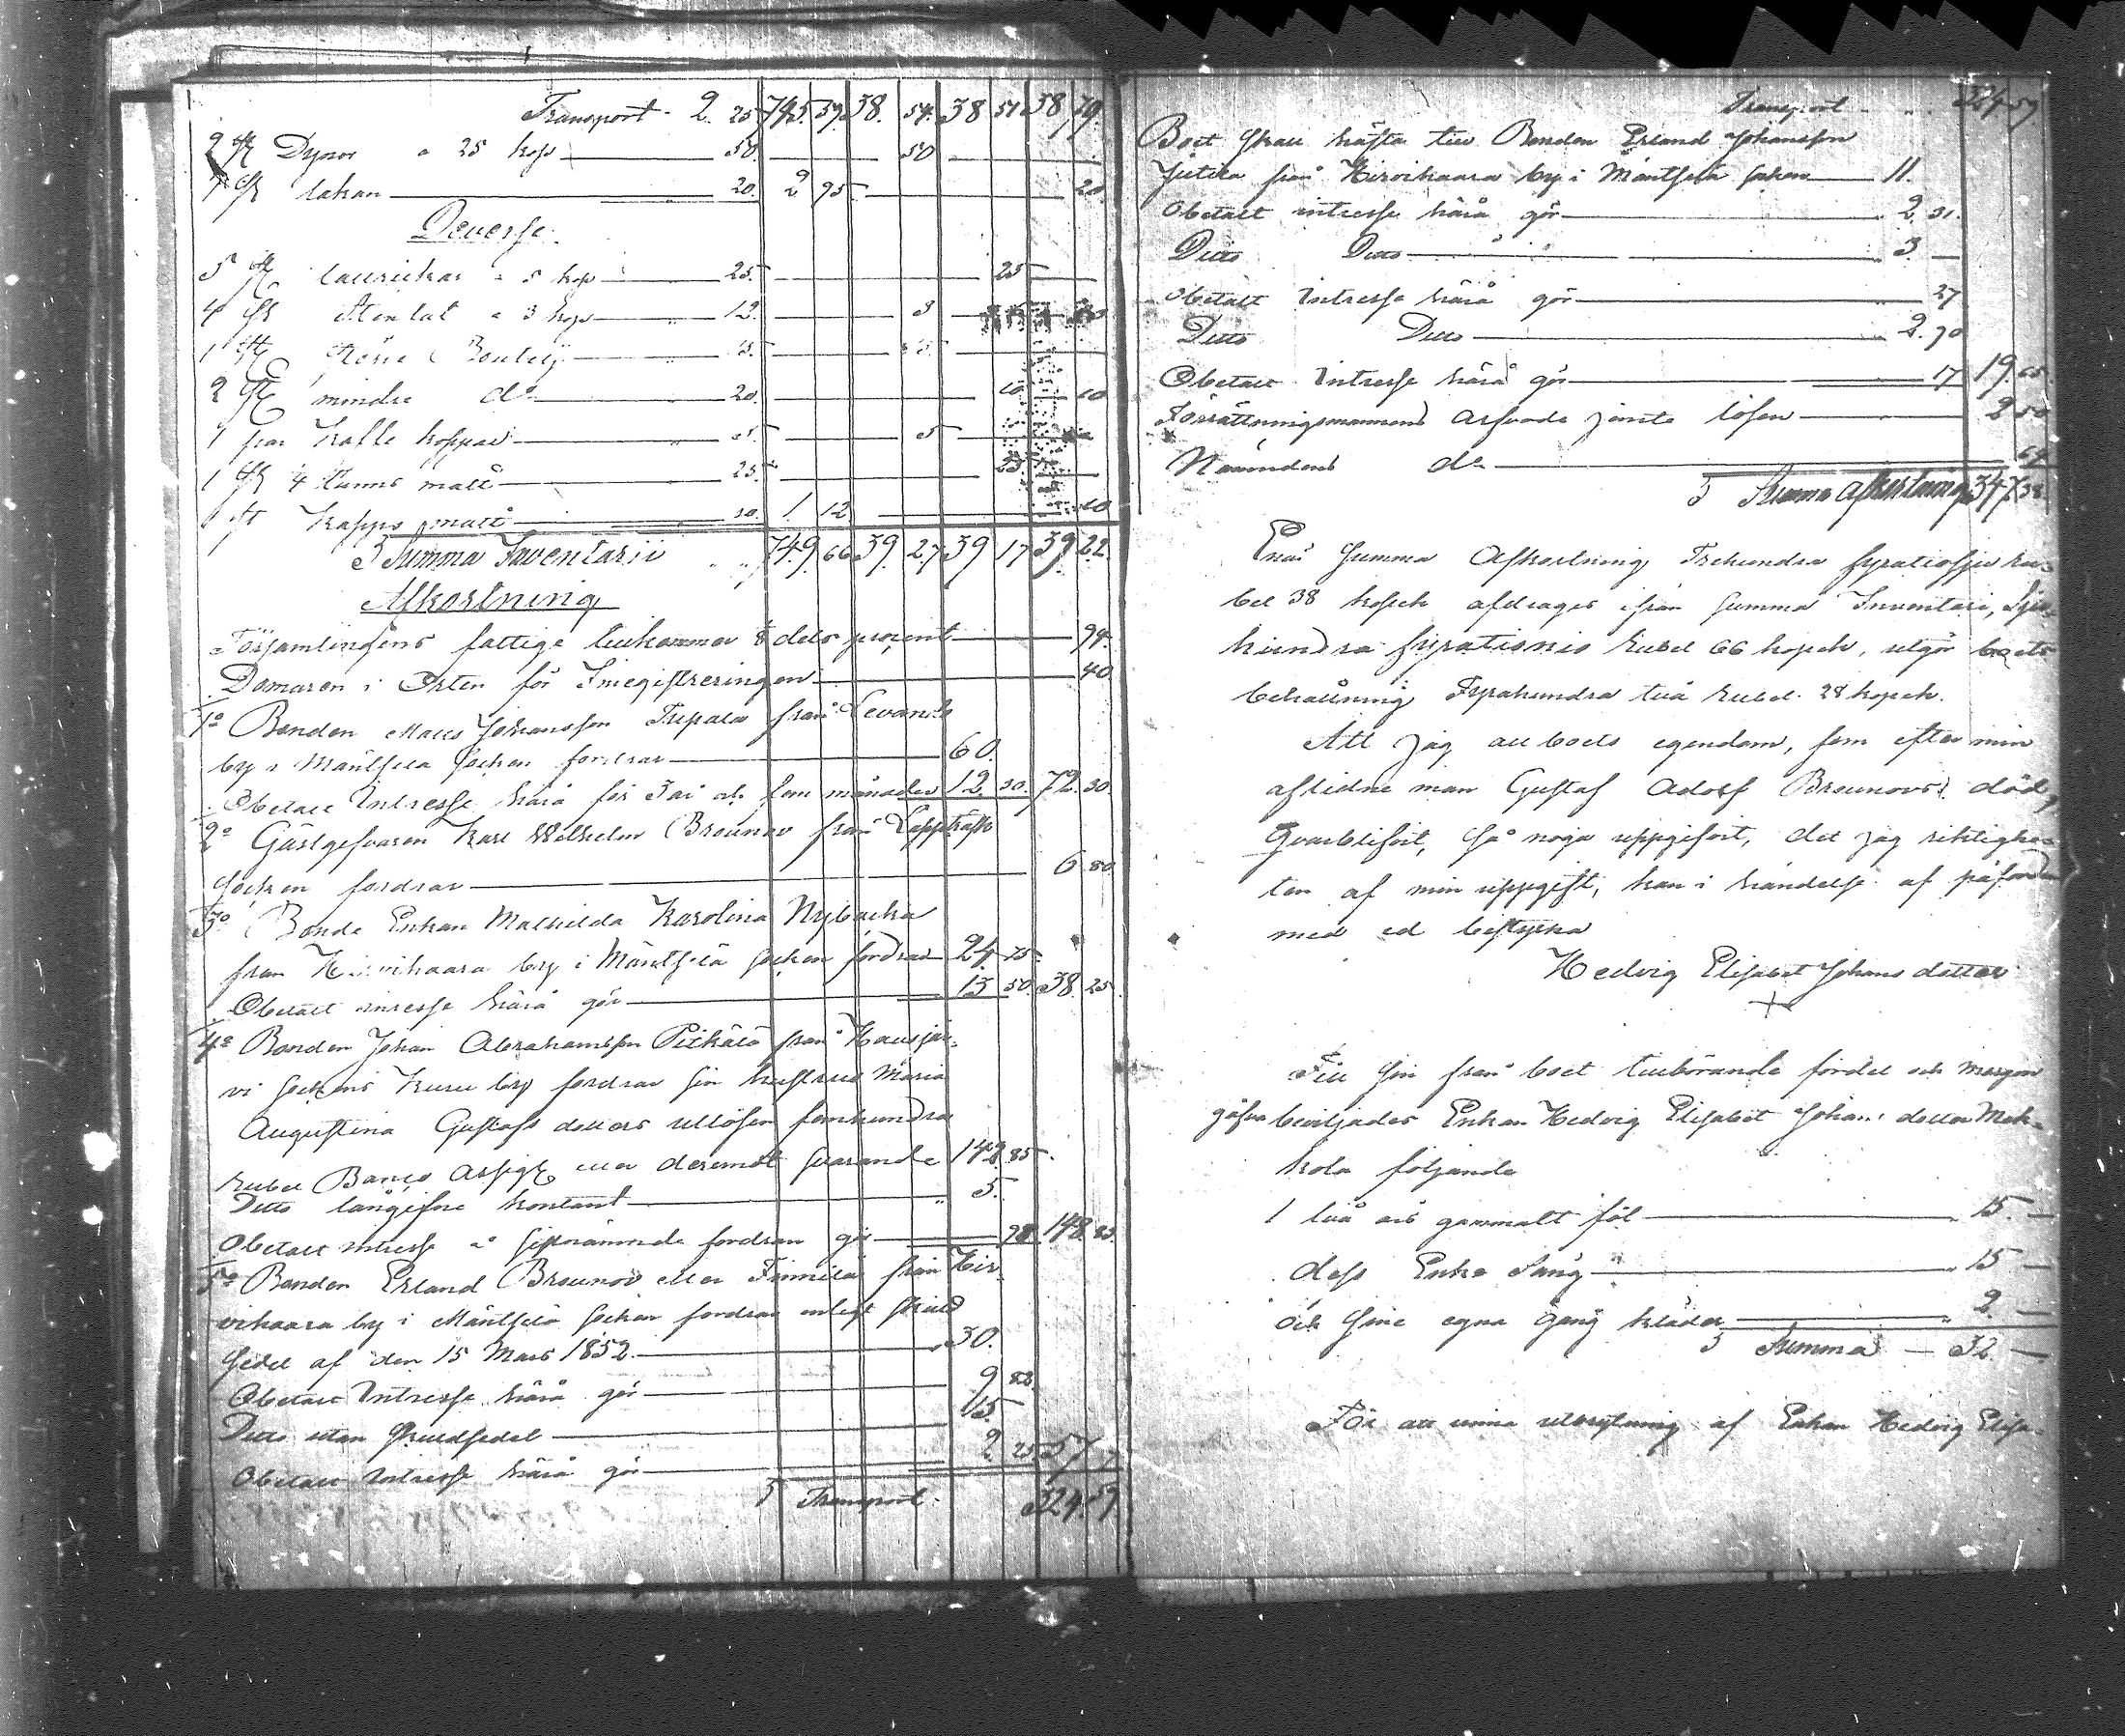 Transport - 2. 25 745. 59. 38. 54. 38 51 38 79.
2 st Dynor a 25 kop 50. 50
1 st lakan 20. 2 95 20
Deverse.
5 st tallrickar a 5 kop 25. 25
4 st Stenfat a 3 kop 12. 3
1 st Större Boutelj 15.
2 st mindre do 20. 10 10
1 par Kaffe koppar 5
1 st 4 tunns mått 25
1 st kapps mått 10. 1. 12 10
S Summa Inventarii 749 66 39. 27 39 17 39 22.
Afkortning
Församlingens fattige tillkommer 1/8 dels procent 94.
Domaren i Orten för Inregistreringen 40
1o Bonden Matts Johansson Tripala från Levanto
by i Mäntselä Socken fordrar 60.
Obetalt Intresse härå för 3 år och fem månader 12 30. 72. 30.
2o Gästgifvaren Karl Wilhelm Brounov från Lappträsk
Socken fordrar 6 80
3o Bonde Enkan Mathilda Karolina Nybacka
från Hirvihaara by i Mäntselä Socken fordrar 24 75
Obetalt intresse härå gör 13 50. 38. 25
4o Bonden Johan Abrahamsson Pitkälä från Hausjär-
vi Sockens Kuru by fordrar sin hustrus Maria
Augustina Gustafs dotters utlösen femhundra
Rubel Banco Assign eller deremot svarande 142 85.
Ditto långifve kontant 5.
Obetalt intresse å sistnämnde fordran gör 28 148.
5o Bonden Erland Brounov eller Finnilä från Hir-
vihaara by i Mäntselä Socken fordrar enligt skuld
sedel af den 15 Mars 1852. 30.
Obetalt Intresse härå gör 9 82
Ditto utan Skuldsedel 15.
Obetalt Intresse härå gör 2 25 57 7
S Transport. 324. 59
Transport 324 59
Boet skall häfta till Bonden Erland Johansson
från Hirvihaara by i Mäntselä Socken 11.
Obetalt intresse härå gör 2. 31.
Ditto Ditto 3. —
Obetalt Intresse härå gör 27
Ditto Ditto 2. 70
Obetalt Intresse härå gör 17 19. 45.
Förrättningsmannens arfvode jämte lösen 2 50
Nämndens do
S Summa afkortning 347. 38.
Enär Summa Afkortning Trehundra fyratiosju ru-
bel 38 kopek afdrages ifrån Summa Inventari, Sju-
hundra fyrationio Rubel 66 kopek, utgör boets
behållning Fyrahundra två Rubel 28 kopek.
Att jag all boets egendom, som efter min
aflidne man Gustaf Adolf Brounovs död,
qvarblifvit, så noga uppgifvit, det jag riktighe-
ten af min uppgift, kan i händelse af påfordran
med ed bestyrka
Hedvig Elisabet Johans dotter
Till sin från boet tillhörande fördel och morgon
gåfva beviljades Enkan Hedvig Elisabet Johans dotter Mok-
kola följande
1 två års gammalt föl 15. —
dess Enke Säng 15 —
och sine egna gång kläder 2. —
S Summa — 32. —
För att vinna utbrytning af Enkan Hedvig Elisa